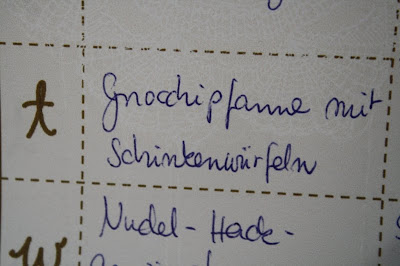 t
Gnocchipfanne mit
Schinkenwürfeln
w
Nudel-Hack-